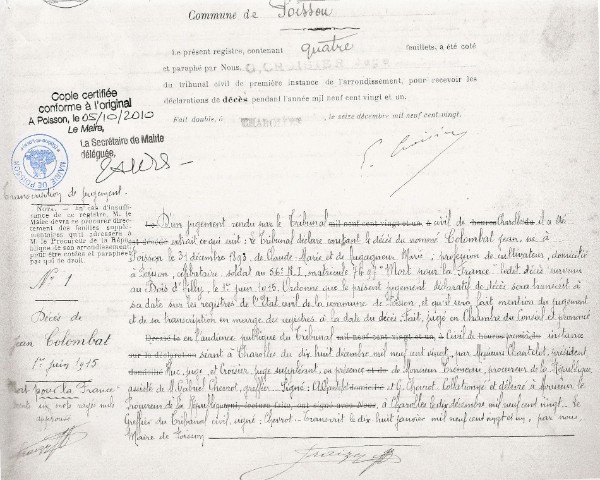 Commune de Poisson
Le présent registre, contenant quatre feuillets, a été coté
et paraphé par Nous, Juge
du tribunal civil de première instance de l'arrondissement, pour recevoir les
déclarations de décès pendant l'année mil neuf cent vingt et un.
Fait double, à CHAROLLES, le seize décembre mil neuf cent vingt.
Copie certifiée
conforme à l'original
A Poisson, le 05/10/2010
Le Maire,
La Secrétaire de Mairie
déléguée,
MAIRIE DE POISSON
Transcription de jugement.
NOTA. — En cas d'insuffi-
sance de ce registre, M. le
Maire devra se procurer direc-
tement des feuilles supplé-
mentaires qu'il adressera
à M. le Procureur de la Répu-
blique de son arrondissement,
pour être cotées et paraphées
par qui de droit.
N° 1
Décès de
Jean Colombat
1er juin 1915
mort pour la France
D'un jugement rendu par le Tribunal mil neuf cent vingt et un, à civil de Charolles il a été
extrait ce qui suit : Le Tribunal déclare constant le décès du nommé Colombat Jean, né à
Poisson le 31 décembre 1893, de Claude Marie et de Marie ; profession de cultivateur, domicilié
à Poisson, célibataire, soldat au 56e R.I, matricule Mort pour la France ledit décès survenu
au Bois d'Ailly, le 1er juin 1915. Ordonne que le présent jugement déclaratif de décès sera transcrit à
sa date sur les registres de l'Etat civil de la commune de Poisson, et qu'il sera fait mention du jugement
et de sa transcription en marge des registres à la date du décès. Fait, jugé en Chambre du Conseil et prononcé
en l'audience publique du Tribunal mil neuf cent vingt et un, à Civil de première instance
séant à Charolles le dix huit décembre mil neuf cent vingt, par Messieurs Chantelot, président
juge, et Croisier, juge suppléant, en présence de Monsieur procureur de la République
assisté de M. Gabriel Chevrot, greffier. Signé : et G. Chevrot. Collationné et délivré à Monsieur le
Procureur de la République, à Charolles le dix décembre mil neuf cent vingt. Le
Greffier du Tribunal civil, signé : Chevrot. Transcrit le dix huit janvier mil neuf cent vingt et un, par nous
Maire de Poisson